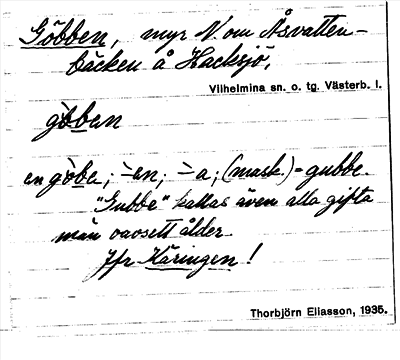 Göbben, myr N. om Åsvatten-
bäcken å Hacksjö.
Vilhelmina sn. o. tg. Västerb. l.
göban
en göbe; -an; -a; (mask.) = gubbe.
"Gubbe" kallas även alla gifta
män oavsett ålder.
Jfr Käringen!
Thorbjörn Eliasson, 1935.